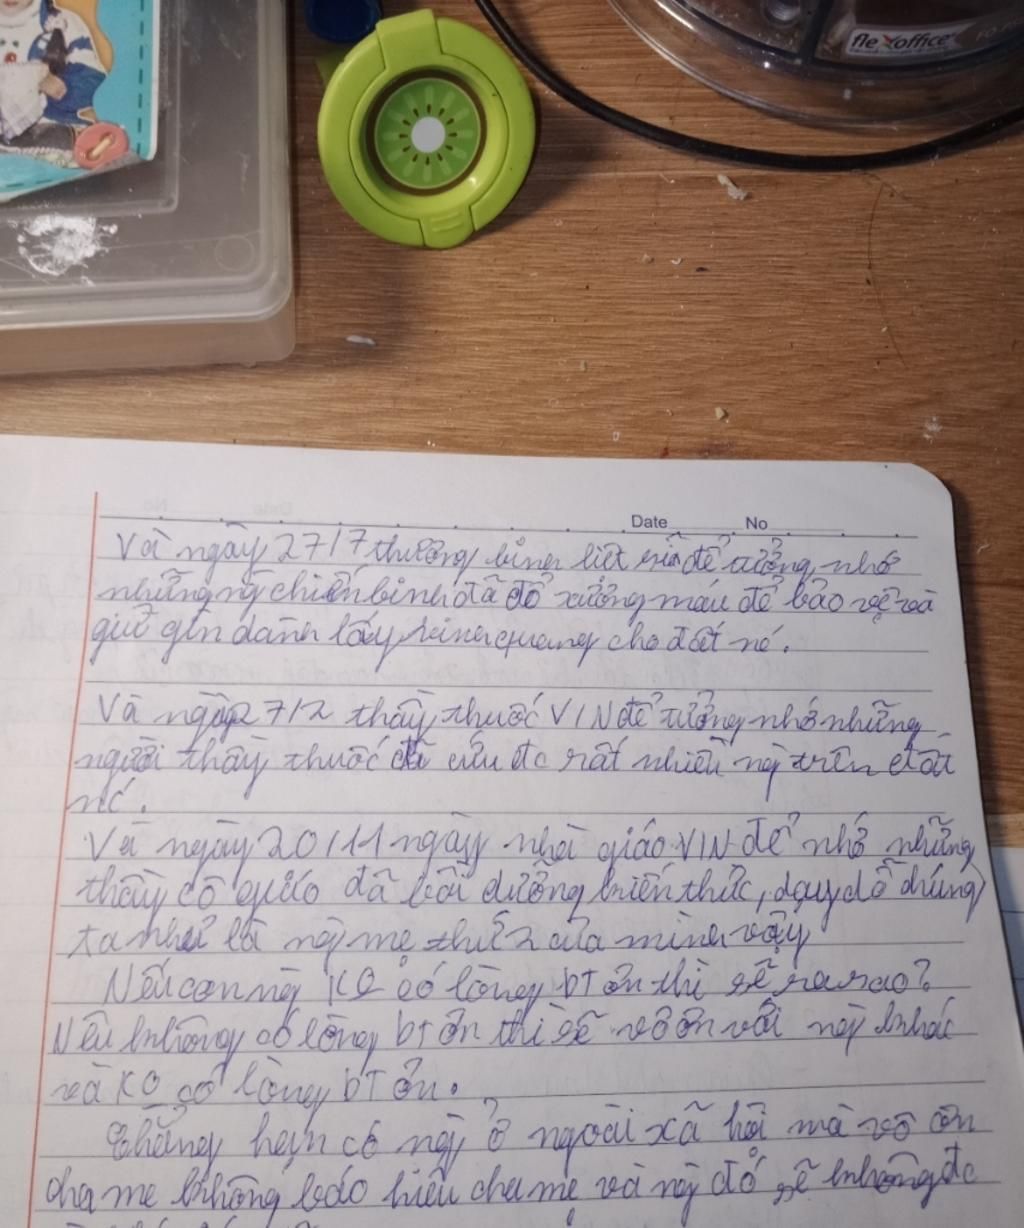 flexoffice
Date No
Và ngày 27/7 thương binh liệt sĩ để tưởng nhớ
những ng chiến binh đã đổ xương máu để bảo vệ và
giữ gìn dành lấy vinh quang cho đất nc.
Và ngày 27/2 thầy thuốc VIN để tưởng nhớ những
người thầy thuốc đã cứu đc rất nhiều ng trên đất
nc.
Và ngày 20/11 ngày nhà giáo VIN để nhớ những
thầy cô giáo đã bồi dưỡng kiến thức, dạy dỗ chúng
ta như là ng mẹ thứ 2 của mình vậy
Nếu con ng KO có lòng bT ơn thì sẽ ra sao?
Nếu không có lòng bT ơn thì sẽ vô ơn với ng khác
và KO có lòng bT ơn.
Chẳng hạn có ng ở ngoài xã hội mà vô ơn
cha mẹ không báo hiếu cha mẹ và ng đó sẽ không đc